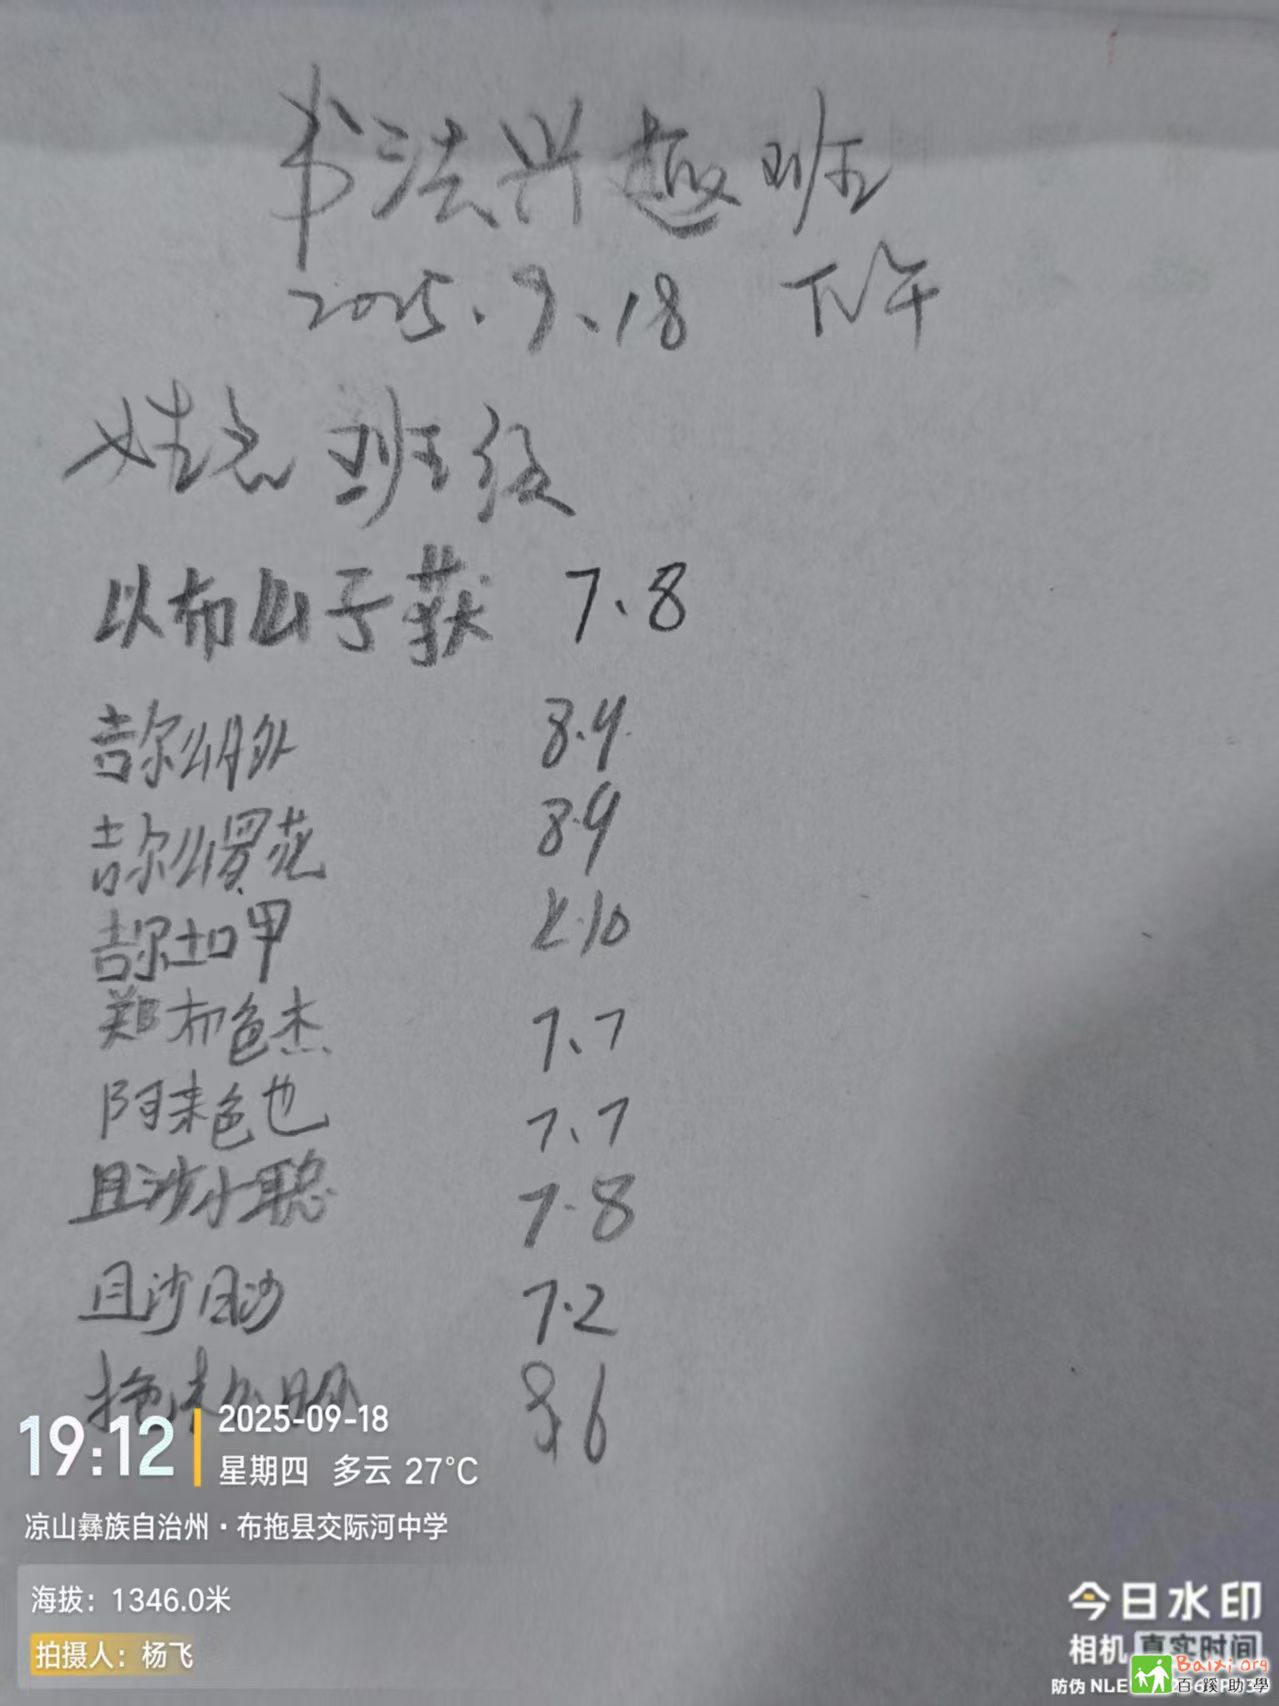 书法兴趣班
2025.9.18 下午
姓名 班级
以布山子获 7.8
吉尔么 8.9
吉尔么 花 8.9
吉尔土甲 .10
郑布色杰 7.7
阿来色也 7.7
且沙小聪 7.8
且沙日沙 7.2
8.6
19:12
2025-09-18
星期四 多云 27°C
凉山彝族自治州·布拖县交际河中学
海拔：1346.0米
拍摄人：杨飞
今日水印
相机 真实时间
防伪 NLE
Baixi.org
百蹊助學